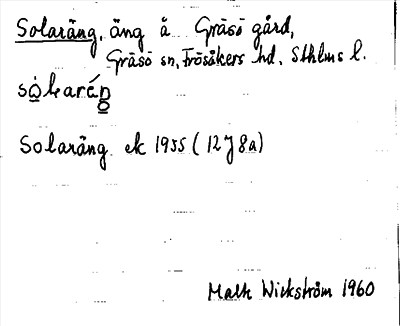 Solaräng, äng å Gräsö gård,
Gräsö sn, Frösåkers hd, Sthlms l.
Solaräng ek 1955 (12J8a)
Math Wickström 1960